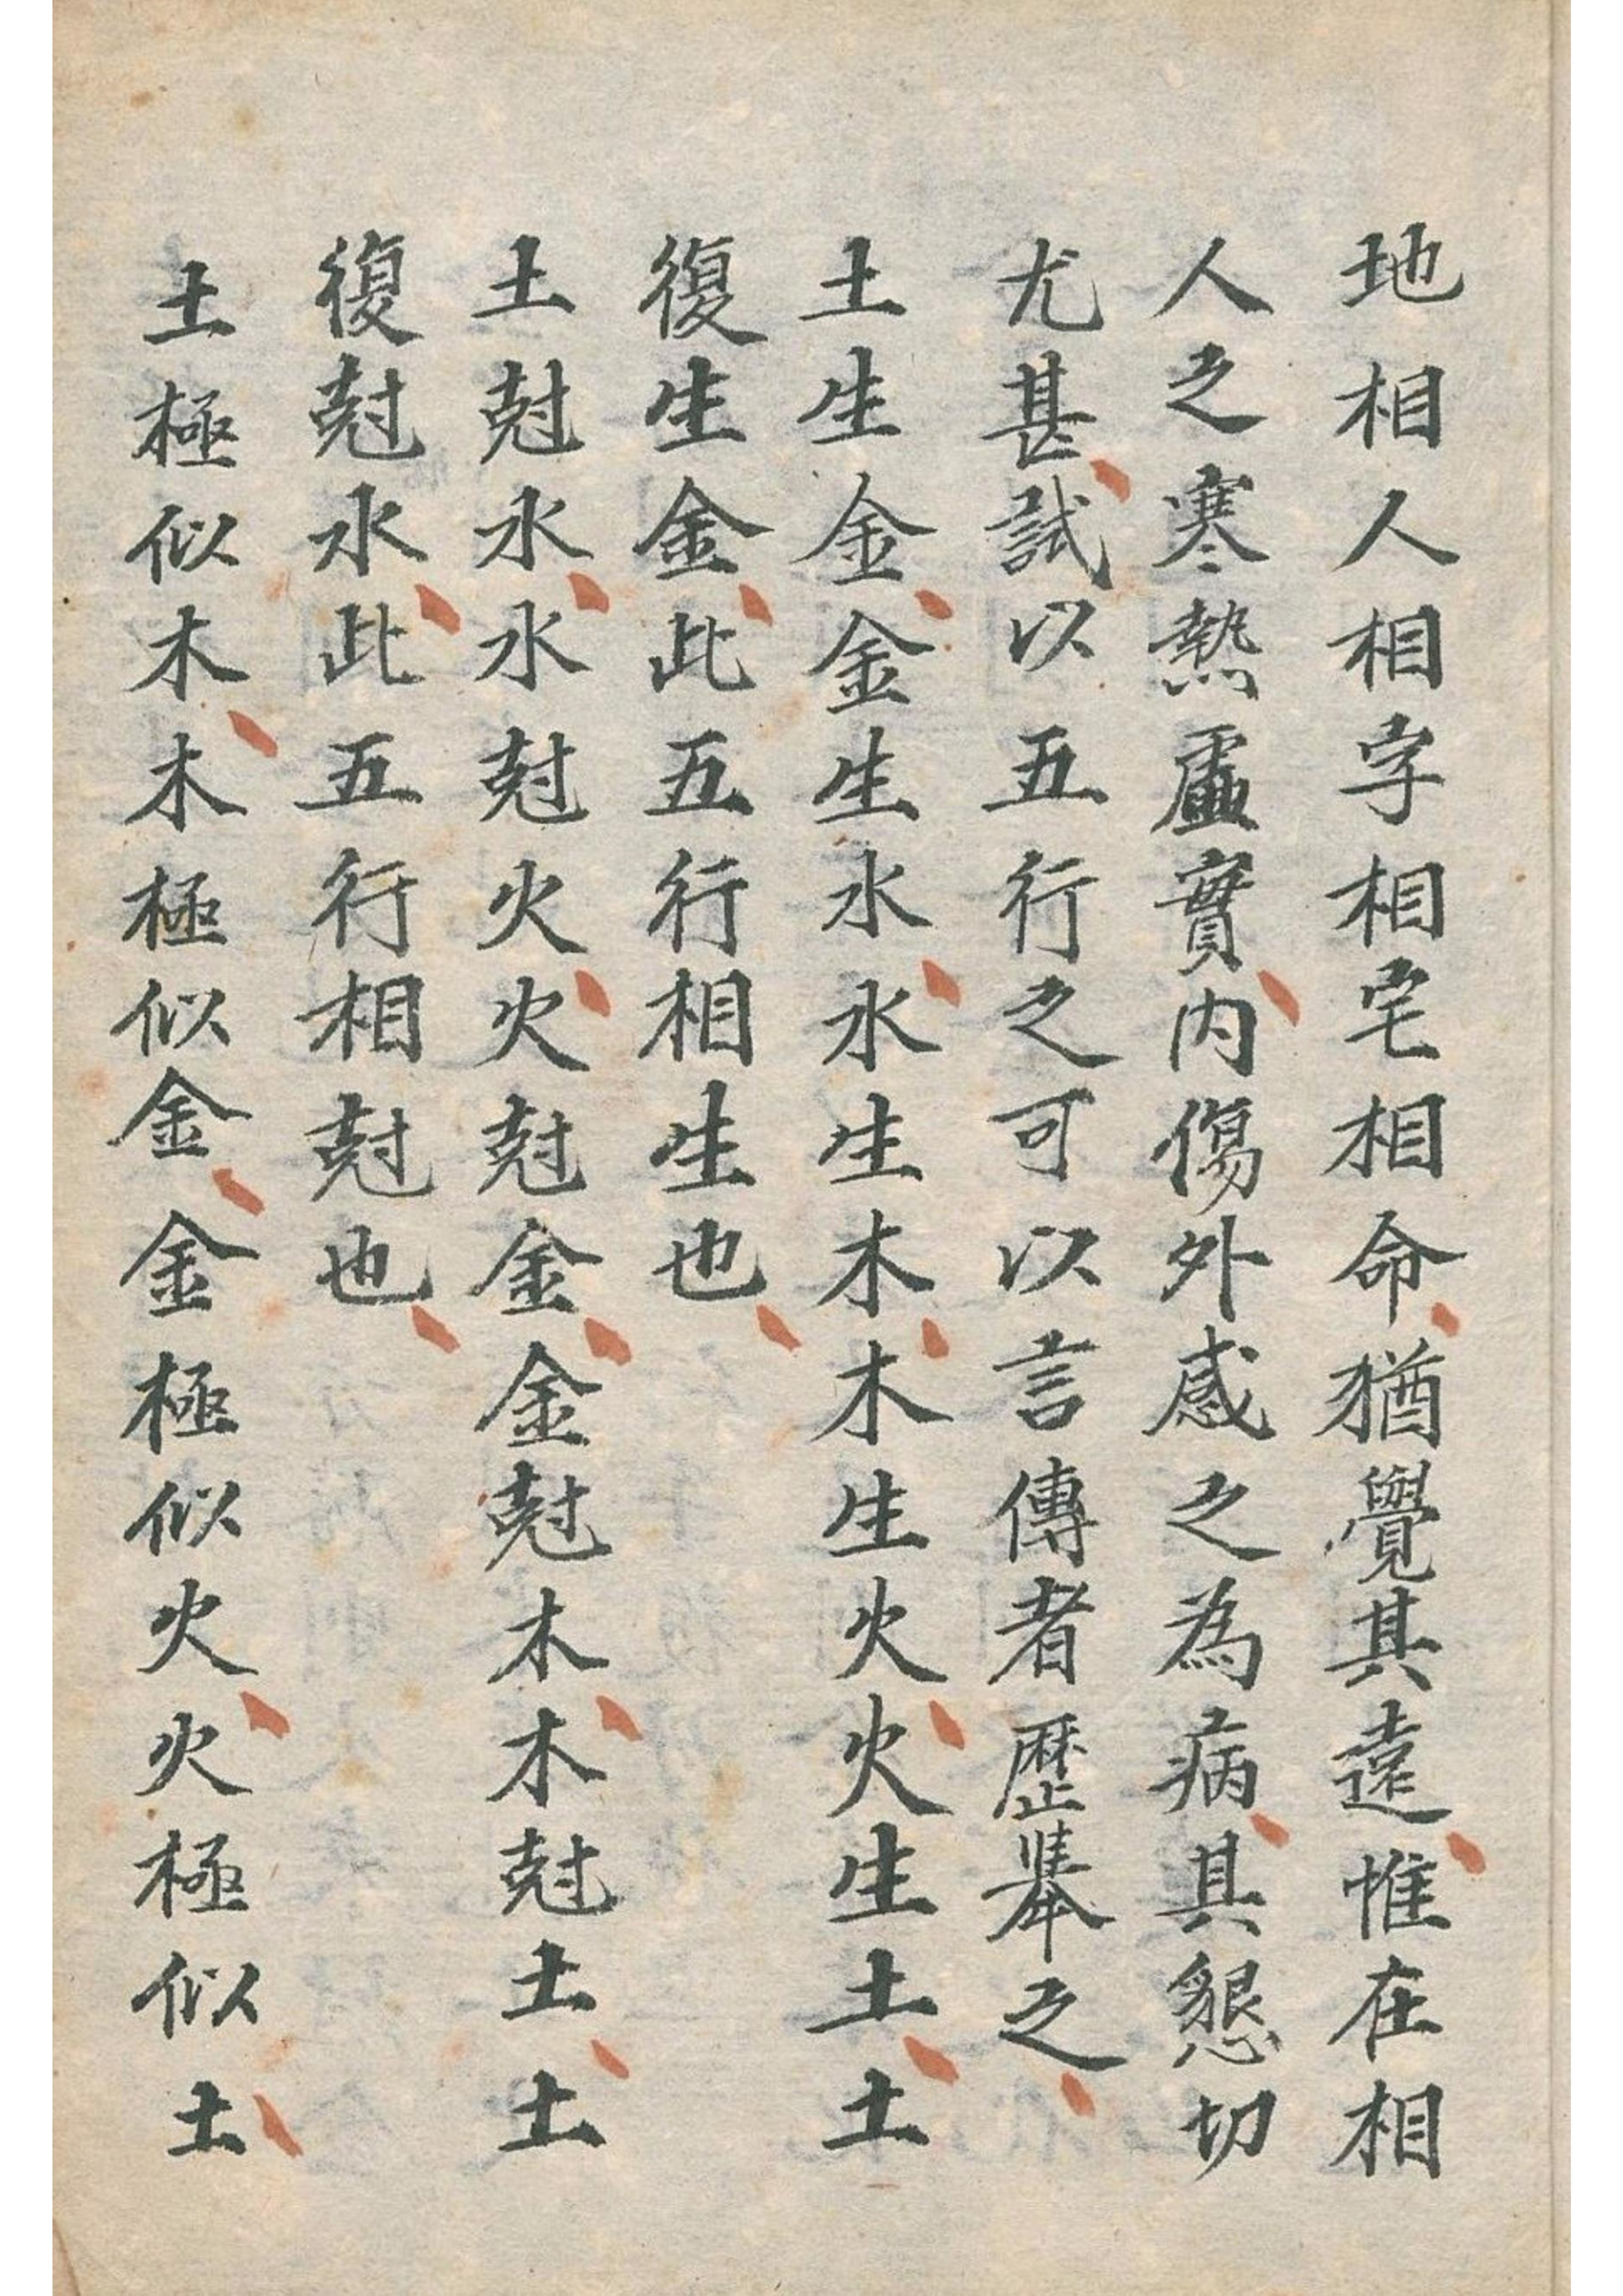 地相人相字相宅相命猶覺其遠惟在相
人之寒熱虛實内傷外感之為病具懇切
尤甚試以五行之可以言傳者歷舉之
土生金金生水水生木木生火火生土土
復生金此五行相生也
土尅水水尅火火尅金金尅木木尅土土
復尅水此五行相尅也
土極似木木極似金金極似火火極似土